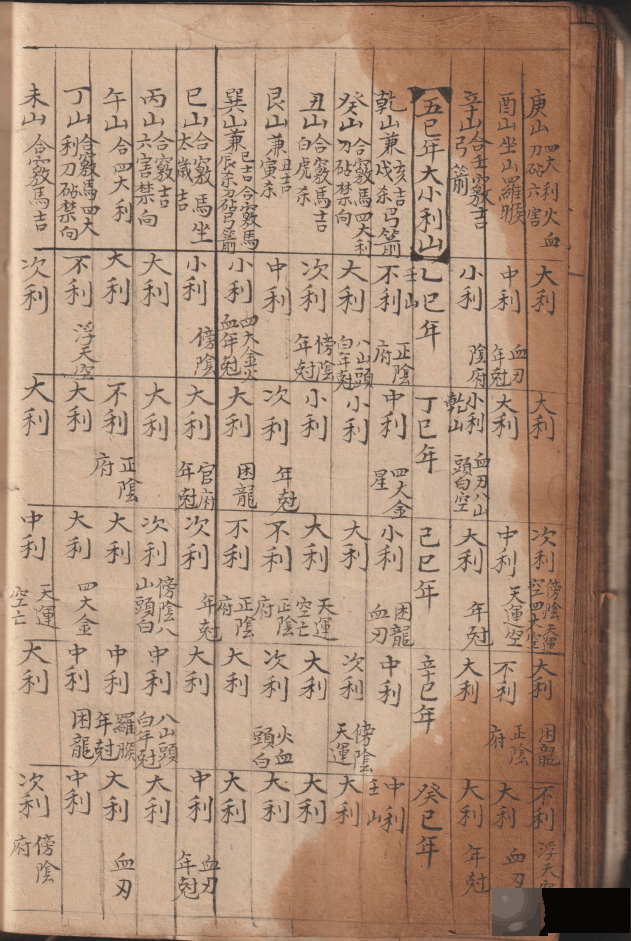 庚山 四大利火血 刀砧六害 大利 大利 次利 傍陰天運 空四大空 大利 困龍 不利 浮天空
酉山 坐山羅睺 中利 血刃 年尅 大利 中利 天運空 不利 正陰府 大利 血刃
辛山 合壬竅吉 弓箭 小利 陰府 小利 乾山 血刃八山 頭白空 大利 年尅 大利 大利 年尅
五巳年大小利山 乙巳年 丁巳年 己巳年 辛巳年 癸巳年
乾山兼 亥吉 戌杀 弓箭 不利 壬山 正陰府 中利 四大金星 小利 困龍 血刃 中利 中利 壬山
癸山 合竅馬四大利 刀砧禁向 大利 八山頭 白年尅 小利 大利 次利 傍陰 天運 大利
丑山 合竅馬吉 白虎杀 次利 傍陰 年尅 小利 大利 天運 空亡 大利 大利
艮山兼 丑吉 寅杀 中利 次利 年尅 不利 正陰府 次利 火血 頭白 大利
巽山兼 巳吉合竅馬 辰杀刀砧弓箭 小利 四大金火 血年尅 大利 困龍 不利 正陰府 大利 大利
巳山 合竅馬坐 太歲吉 小利 傍陰 大利 官府 年尅 次利 年尅 大利 中利 血刃 年尅
丙山 合竅吉 六害禁向 大利 大利 次利 傍陰八 山頭白 中利 八山頭 白年尅 大利
午山 合四大利 大利 不利 正陰府 大利 中利 羅睺 年尅 大利 血刃
丁山 合竅馬四大 利刀砧禁向 不利 浮天空 大利 大利 四大金 中利 困龍 中利
未山 合竅馬吉 次利 大利 中利 天運 空亡 大利 次利 傍陰府